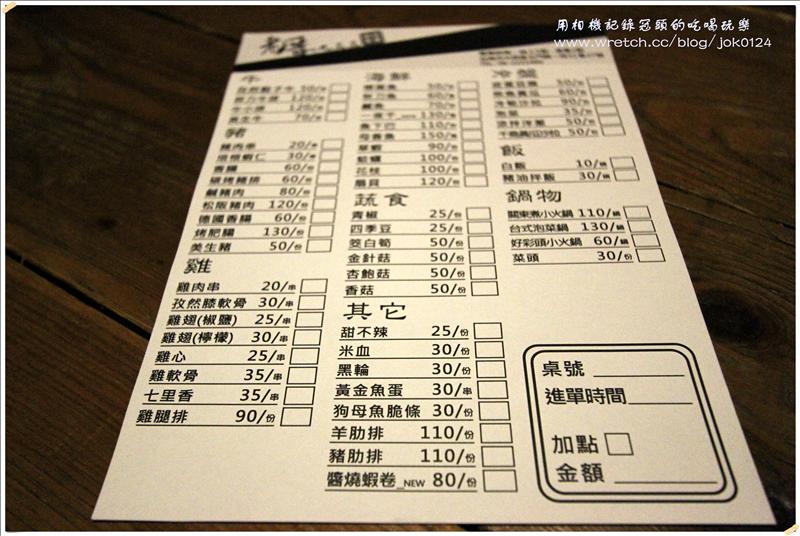 用相機記錄冠頭的吃喝玩樂
www.wretch.cc/blog/jok0124
牛
120/
120/
70/
豬
豬肉串 20/串
培根蝦仁 30/串
香腸 60/份
碳烤豬排 60/份
鹹豬肉 80/份
松阪豬肉 120/份
德國香腸 60/份
烤肥腸 130/份
美生豬 50/份
雞
雞肉串 20/串
孜然膝軟骨 30/串
雞翅(椒鹽) 25/串
雞翅(檸檬) 30/串
雞心 25/串
雞軟骨 35/串
七里香 35/串
雞腿排 90/份
海鮮
一夜干_NEW 130/
魚下巴 110/
150/
草蝦 90/
蛤蠣 100/
花枝 100/份
扇貝 120/份
蔬食
青椒 25/份
四季豆 25/份
筊白筍 50/份
金針菇 50/份
杏鮑菇 50/份
香菇 50/份
其它
甜不辣 25/份
米血 30/份
黑輪 30/份
黃金魚蛋 30/串
狗母魚脆條 30/份
羊肋排 110/份
豬肋排 110/份
醬燒蝦卷_NEW 80/份
冷盤
90/
泡菜 35/
涼拌洋蔥 50/
50/份
飯
白飯 10/碗
豬油拌飯 30/碗
鍋物
關東煮小火鍋 110/鍋
台式泡菜鍋 130/鍋
好彩頭小火鍋 60/鍋
菜頭 30/份
桌號
進單時間
加點
金額